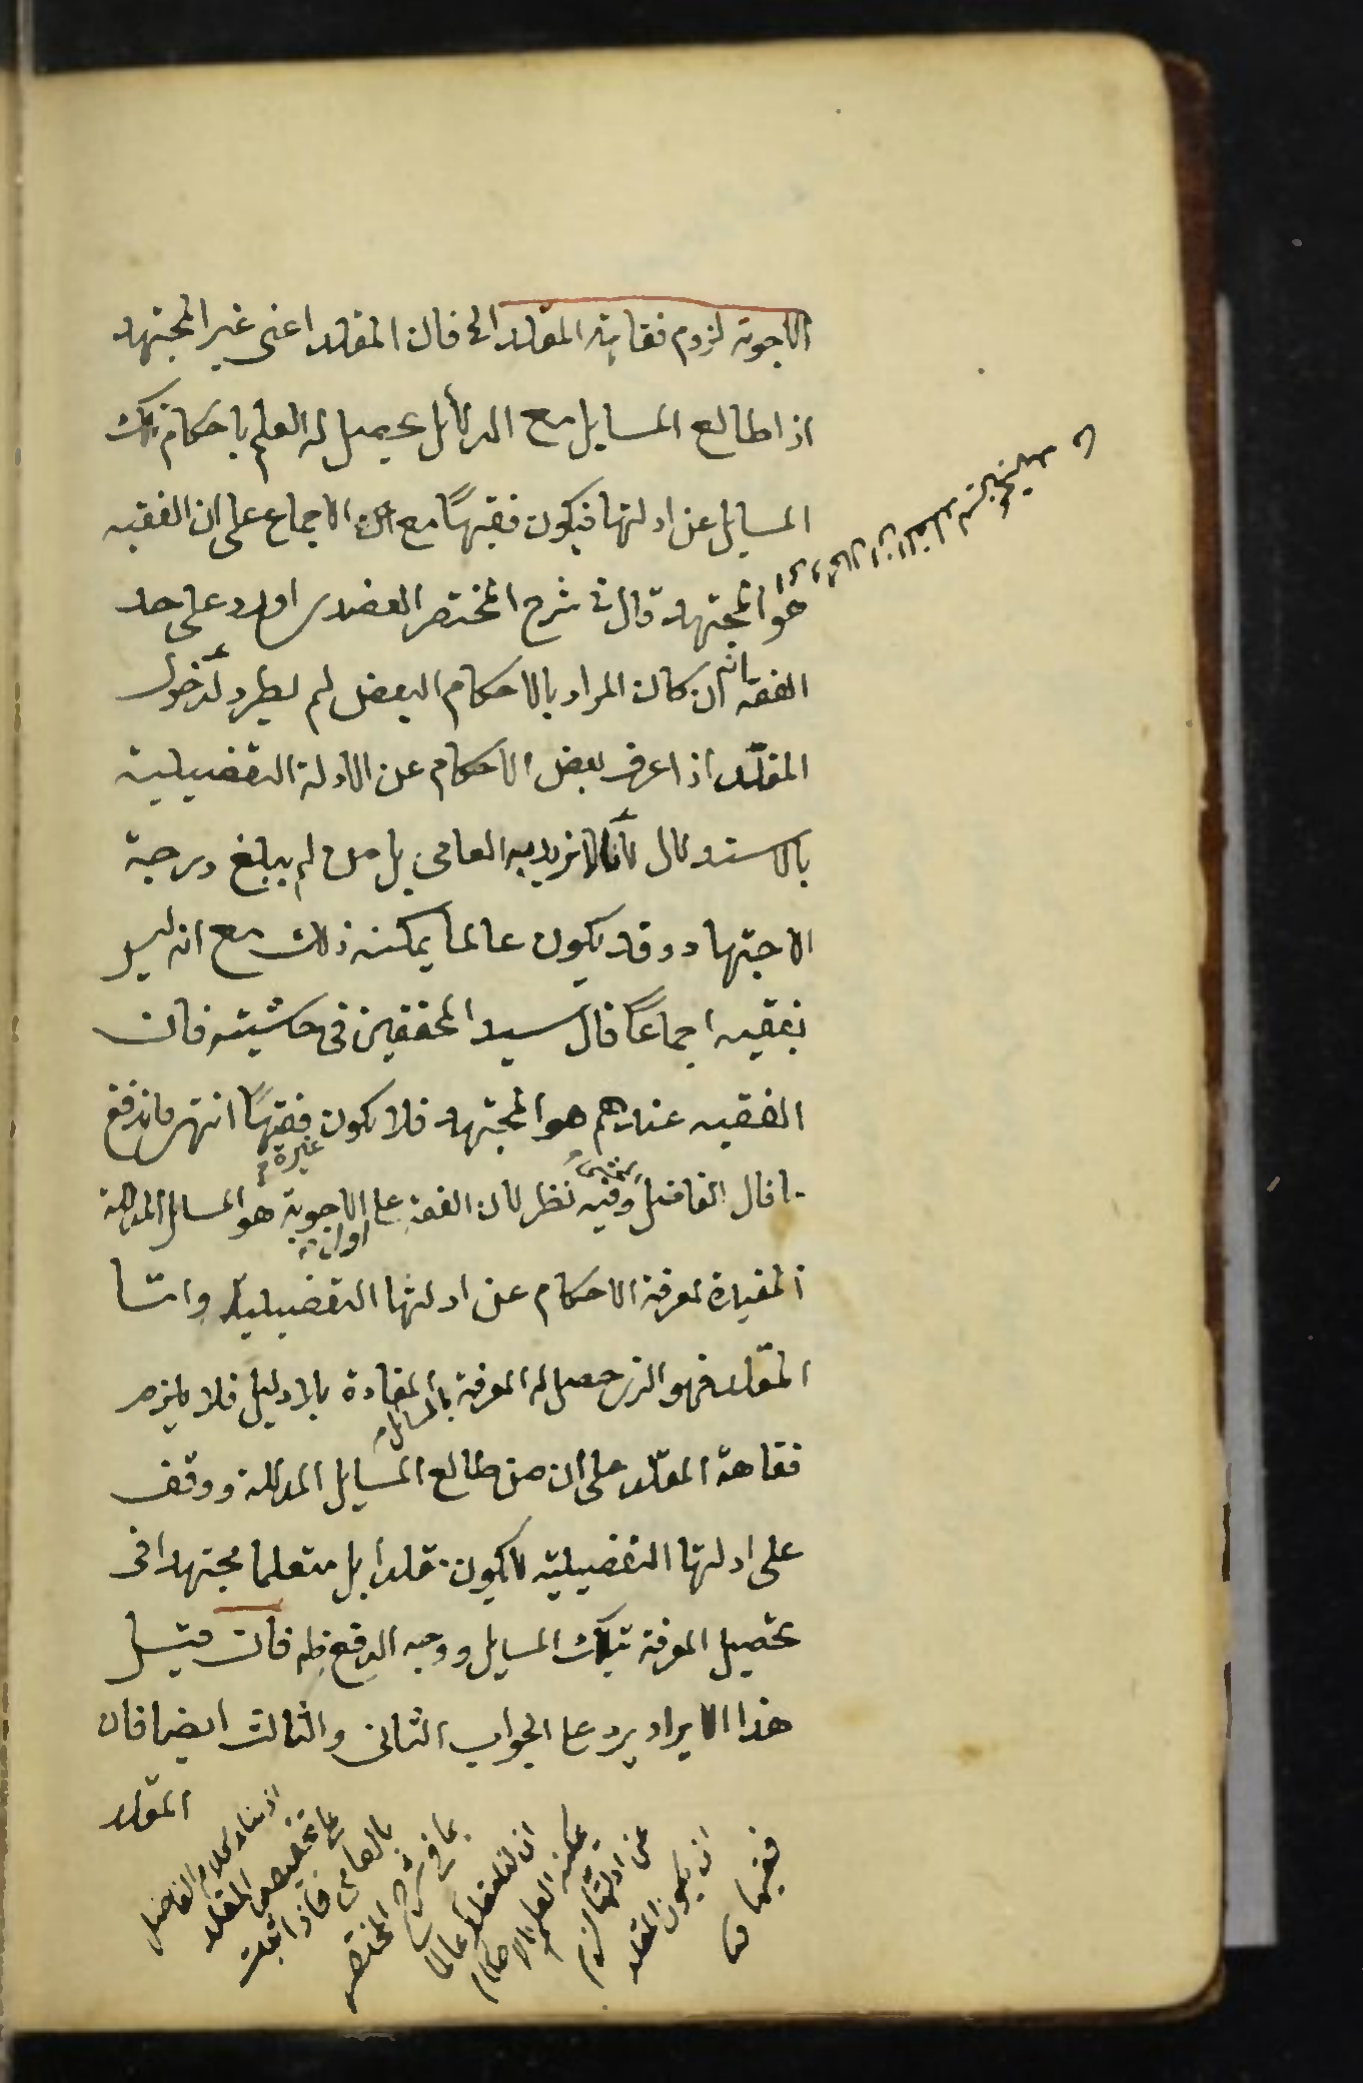 الاجوبة لزوم فقاهة المقلد الخ فان المقلد اعنى غير المجتهد
اذا طالع المسايل مع الدلائل يحصل له العلم باحكام تلك
المسايل عن ادلتها فيكون فقيهًا مع ان الاجماع على ان الفقيه
هو المجتهد قال فى شرح المختصر العضدى اورد على حد
الفقه انه ان كان المراد بالاحكام البعض لم يطرد لدخول
المقلد اذا عرف بعض الاحكام عن الادلة التفصيلية
بالاستدلال لأنا لا نريد به العامى بل من لم يبلغ درجة
الاجتهاد وقد يكون عالما يمكنه ذلك مع انه ليس
بفقيه اجماعًا قال سيد المحققين فى حاشيته فان
الفقيه عندهم هو المجتهد فلا يكون فقيهًا انتهى فاندفع
ما قال الفاضل وفيه نظر لان الفقه على الاجوبة هو المسايل المدللة
المفيدة لمعرفة الاحكام عن ادلتها التفصيلية واما
المقلد فهو الذى حصل له المعرفة بالمسائل المفادة بلا دليل فلا يلزم
فقاهة المقلد على ان من طالع المسايل المدللة ووقف
على ادلتها التفصيلية لا يكون مقلدا بل متعلما مجتهدا فى
تحصيل المعرفة بتلك المسايل ووجه الدفع ظه فان قيل
هذا الايراد يرد على الجواب الثانى والثالث ايضا فان
المقلد
اذ بناء كلام الفاضل
على تخصيص المقلد
بالعامى فاذا ثبت
بما فى شرح المختصر
ان المقلد عالما
يمكنه العلم بالاحكام
عن ادلتها لزم
ان يكون المقلد
فقيها